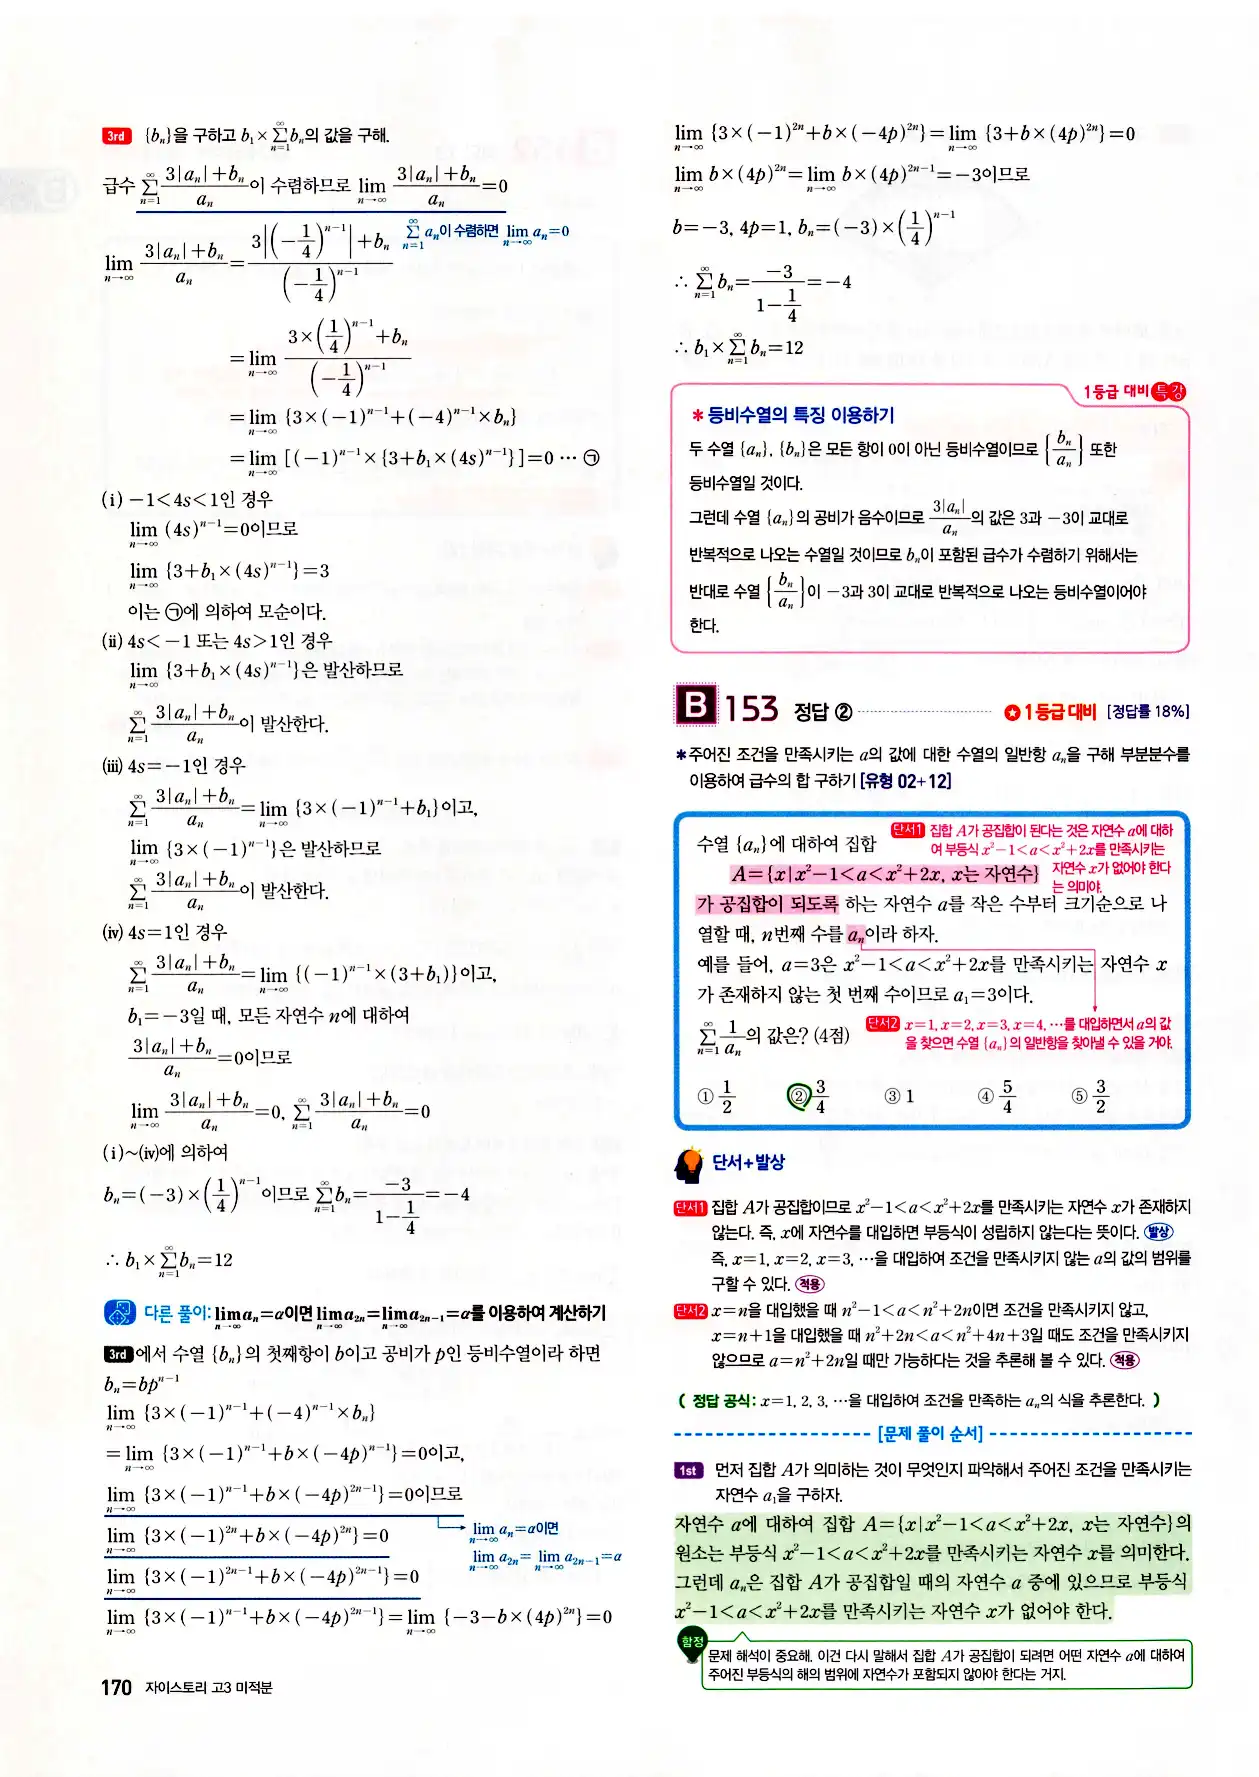 3rd {bₙ}을 구하고 b₁×∑(n=1~∞) bₙ의 값을 구해.
급수 ∑(n=1~∞) (3|aₙ|+bₙ)/aₙ이 수렴하므로 lim(n→∞) (3|aₙ|+bₙ)/aₙ=0
∑(n=1~∞) aₙ이 수렴하면 lim(n→∞) aₙ=0
lim(n→∞) (3|aₙ|+bₙ)/aₙ = (3|(-1/4)ⁿ⁻¹|+bₙ)/(-1/4)ⁿ⁻¹
=lim(n→∞) (3×(1/4)ⁿ⁻¹+bₙ)/(-1/4)ⁿ⁻¹
=lim(n→∞) {3×(-1)ⁿ⁻¹+(-4)ⁿ⁻¹×bₙ}
=lim(n→∞) [(-1)ⁿ⁻¹×{3+b₁×(4s)ⁿ⁻¹}]=0 ⋯ ㉠
(i) -1<4s<1인 경우
lim(n→∞) (4s)ⁿ⁻¹=0이므로
lim(n→∞) {3+b₁×(4s)ⁿ⁻¹}=3
이는 ㉠에 의하여 모순이다.
(ii) 4s<-1 또는 4s>1인 경우
lim(n→∞) {3+b₁×(4s)ⁿ⁻¹}은 발산하므로
∑(n=1~∞) (3|aₙ|+bₙ)/aₙ이 발산한다.
(iii) 4s=-1인 경우
∑(n=1~∞) (3|aₙ|+bₙ)/aₙ=lim(n→∞) {3×(-1)ⁿ⁻¹+b₁}이고,
lim(n→∞) {3×(-1)ⁿ⁻¹}은 발산하므로
∑(n=1~∞) (3|aₙ|+bₙ)/aₙ이 발산한다.
(iv) 4s=1인 경우
∑(n=1~∞) (3|aₙ|+bₙ)/aₙ=lim(n→∞) {(-1)ⁿ⁻¹×(3+b₁)}이고,
b₁=-3일 때, 모든 자연수 n에 대하여
(3|aₙ|+bₙ)/aₙ=0이므로
lim(n→∞) (3|aₙ|+bₙ)/aₙ=0, ∑(n=1~∞) (3|aₙ|+bₙ)/aₙ=0
(i)~(iv)에 의하여
bₙ=(-3)×(1/4)ⁿ⁻¹이므로 ∑(n=1~∞) bₙ=-3/(1-1/4)=-4
∴ b₁×∑(n=1~∞) bₙ=12
다른 풀이: lim(n→∞) aₙ=α이면 lim(n→∞) a₂ₙ=lim(n→∞) a₂ₙ₋₁=α를 이용하여 계산하기
3rd에서 수열 {bₙ}의 첫째항이 b이고 공비가 p인 등비수열이라 하면
bₙ=bpⁿ⁻¹
lim(n→∞) {3×(-1)ⁿ⁻¹+(-4)ⁿ⁻¹×bₙ}
=lim(n→∞) {3×(-1)ⁿ⁻¹+b×(-4p)ⁿ⁻¹}=0이고,
lim(n→∞) {3×(-1)ⁿ⁻¹+b×(-4p)²ⁿ⁻¹}=0이므로
lim(n→∞) {3×(-1)²ⁿ+b×(-4p)²ⁿ}=0
lim(n→∞) aₙ=α이면
lim(n→∞) a₂ₙ=lim(n→∞) a₂ₙ₋₁=α
lim(n→∞) {3×(-1)²ⁿ⁻¹+b×(-4p)²ⁿ⁻¹}=0
lim(n→∞) {3×(-1)ⁿ⁻¹+b×(-4p)²ⁿ⁻¹}=lim(n→∞) {-3-b×(4p)²ⁿ}=0
170 자이스토리 고3 미적분
lim(n→∞) {3×(-1)²ⁿ+b×(-4p)²ⁿ}=lim(n→∞) {3+b×(4p)²ⁿ}=0
lim(n→∞) b×(4p)²ⁿ=lim(n→∞) b×(4p)²ⁿ⁻¹=-3이므로
b=-3, 4p=1, bₙ=(-3)×(1/4)ⁿ⁻¹
∴ ∑(n=1~∞) bₙ=-3/(1-1/4)=-4
∴ b₁×∑(n=1~∞) bₙ=12
1등급 대비 특강
*등비수열의 특징 이용하기
두 수열 {aₙ}, {bₙ}은 모든 항이 0이 아닌 등비수열이므로 {bₙ/aₙ} 또한
등비수열일 것이다.
그런데 수열 {aₙ}의 공비가 음수이므로 3|aₙ|/aₙ의 값은 3과 -3이 교대로
반복적으로 나오는 수열일 것이므로 bₙ이 포함된 급수가 수렴하기 위해서는
반대로 수열 {bₙ/aₙ}이 -3과 3이 교대로 반복적으로 나오는 등비수열이어야
한다.
B 153 정답 ② 1등급 대비 [정답률 18%]
*주어진 조건을 만족시키는 a의 값에 대한 수열의 일반항 aₙ을 구해 부분분수를
이용하여 급수의 합 구하기 [유형 02+12]
수열 {aₙ}에 대하여 집합
단서1 집합 A가 공집합이 된다는 것은 자연수 a에 대하
여 부등식 x²-1<a<x²+2x를 만족시키는
자연수 x가 없어야 한다
는 의미야.
A={x|x²-1<a<x²+2x, x는 자연수}
가 공집합이 되도록 하는 자연수 a를 작은 수부터 크기순으로 나
열할 때, n번째 수를 aₙ이라 하자.
예를 들어, a=3은 x²-1<a<x²+2x를 만족시키는 자연수 x
가 존재하지 않는 첫 번째 수이므로 a₁=3이다.
∑(n=1~∞) 1/aₙ의 값은? (4점)
단서2 x=1, x=2, x=3, x=4, ⋯를 대입하면서 a의 값
을 찾으면 수열 {aₙ}의 일반항을 찾아낼 수 있을 거야.
① 1/2 ② 3/4 ③ 1 ④ 5/4 ⑤ 3/2
단서+발상
단서1 집합 A가 공집합이므로 x²-1<a<x²+2x를 만족시키는 자연수 x가 존재하지
않는다. 즉, x에 자연수를 대입하면 부등식이 성립하지 않는다는 뜻이다. 발상
즉, x=1, x=2, x=3, ⋯을 대입하여 조건을 만족시키지 않는 a의 값의 범위를
구할 수 있다. 적용
단서2 x=n을 대입했을 때 n²-1<a<n²+2n이면 조건을 만족시키지 않고,
x=n+1을 대입했을 때 n²+2n<a<n²+4n+3일 때도 조건을 만족시키지
않으므로 a=n²+2n일 때만 가능하다는 것을 추론해 볼 수 있다. 적용
( 정답 공식: x=1, 2, 3, ⋯을 대입하여 조건을 만족하는 aₙ의 식을 추론한다. )
[문제 풀이 순서]
1st 먼저 집합 A가 의미하는 것이 무엇인지 파악해서 주어진 조건을 만족시키는
자연수 a₁을 구하자.
자연수 a에 대하여 집합 A={x|x²-1<a<x²+2x, x는 자연수}의
원소는 부등식 x²-1<a<x²+2x를 만족시키는 자연수 x를 의미한다.
그런데 aₙ은 집합 A가 공집합일 때의 자연수 a 중에 있으므로 부등식
x²-1<a<x²+2x를 만족시키는 자연수 x가 없어야 한다.
함정
문제 해석이 중요해. 이건 다시 말해서 집합 A가 공집합이 되려면 어떤 자연수 a에 대하여
주어진 부등식의 해의 범위에 자연수가 포함되지 않아야 한다는 거지.